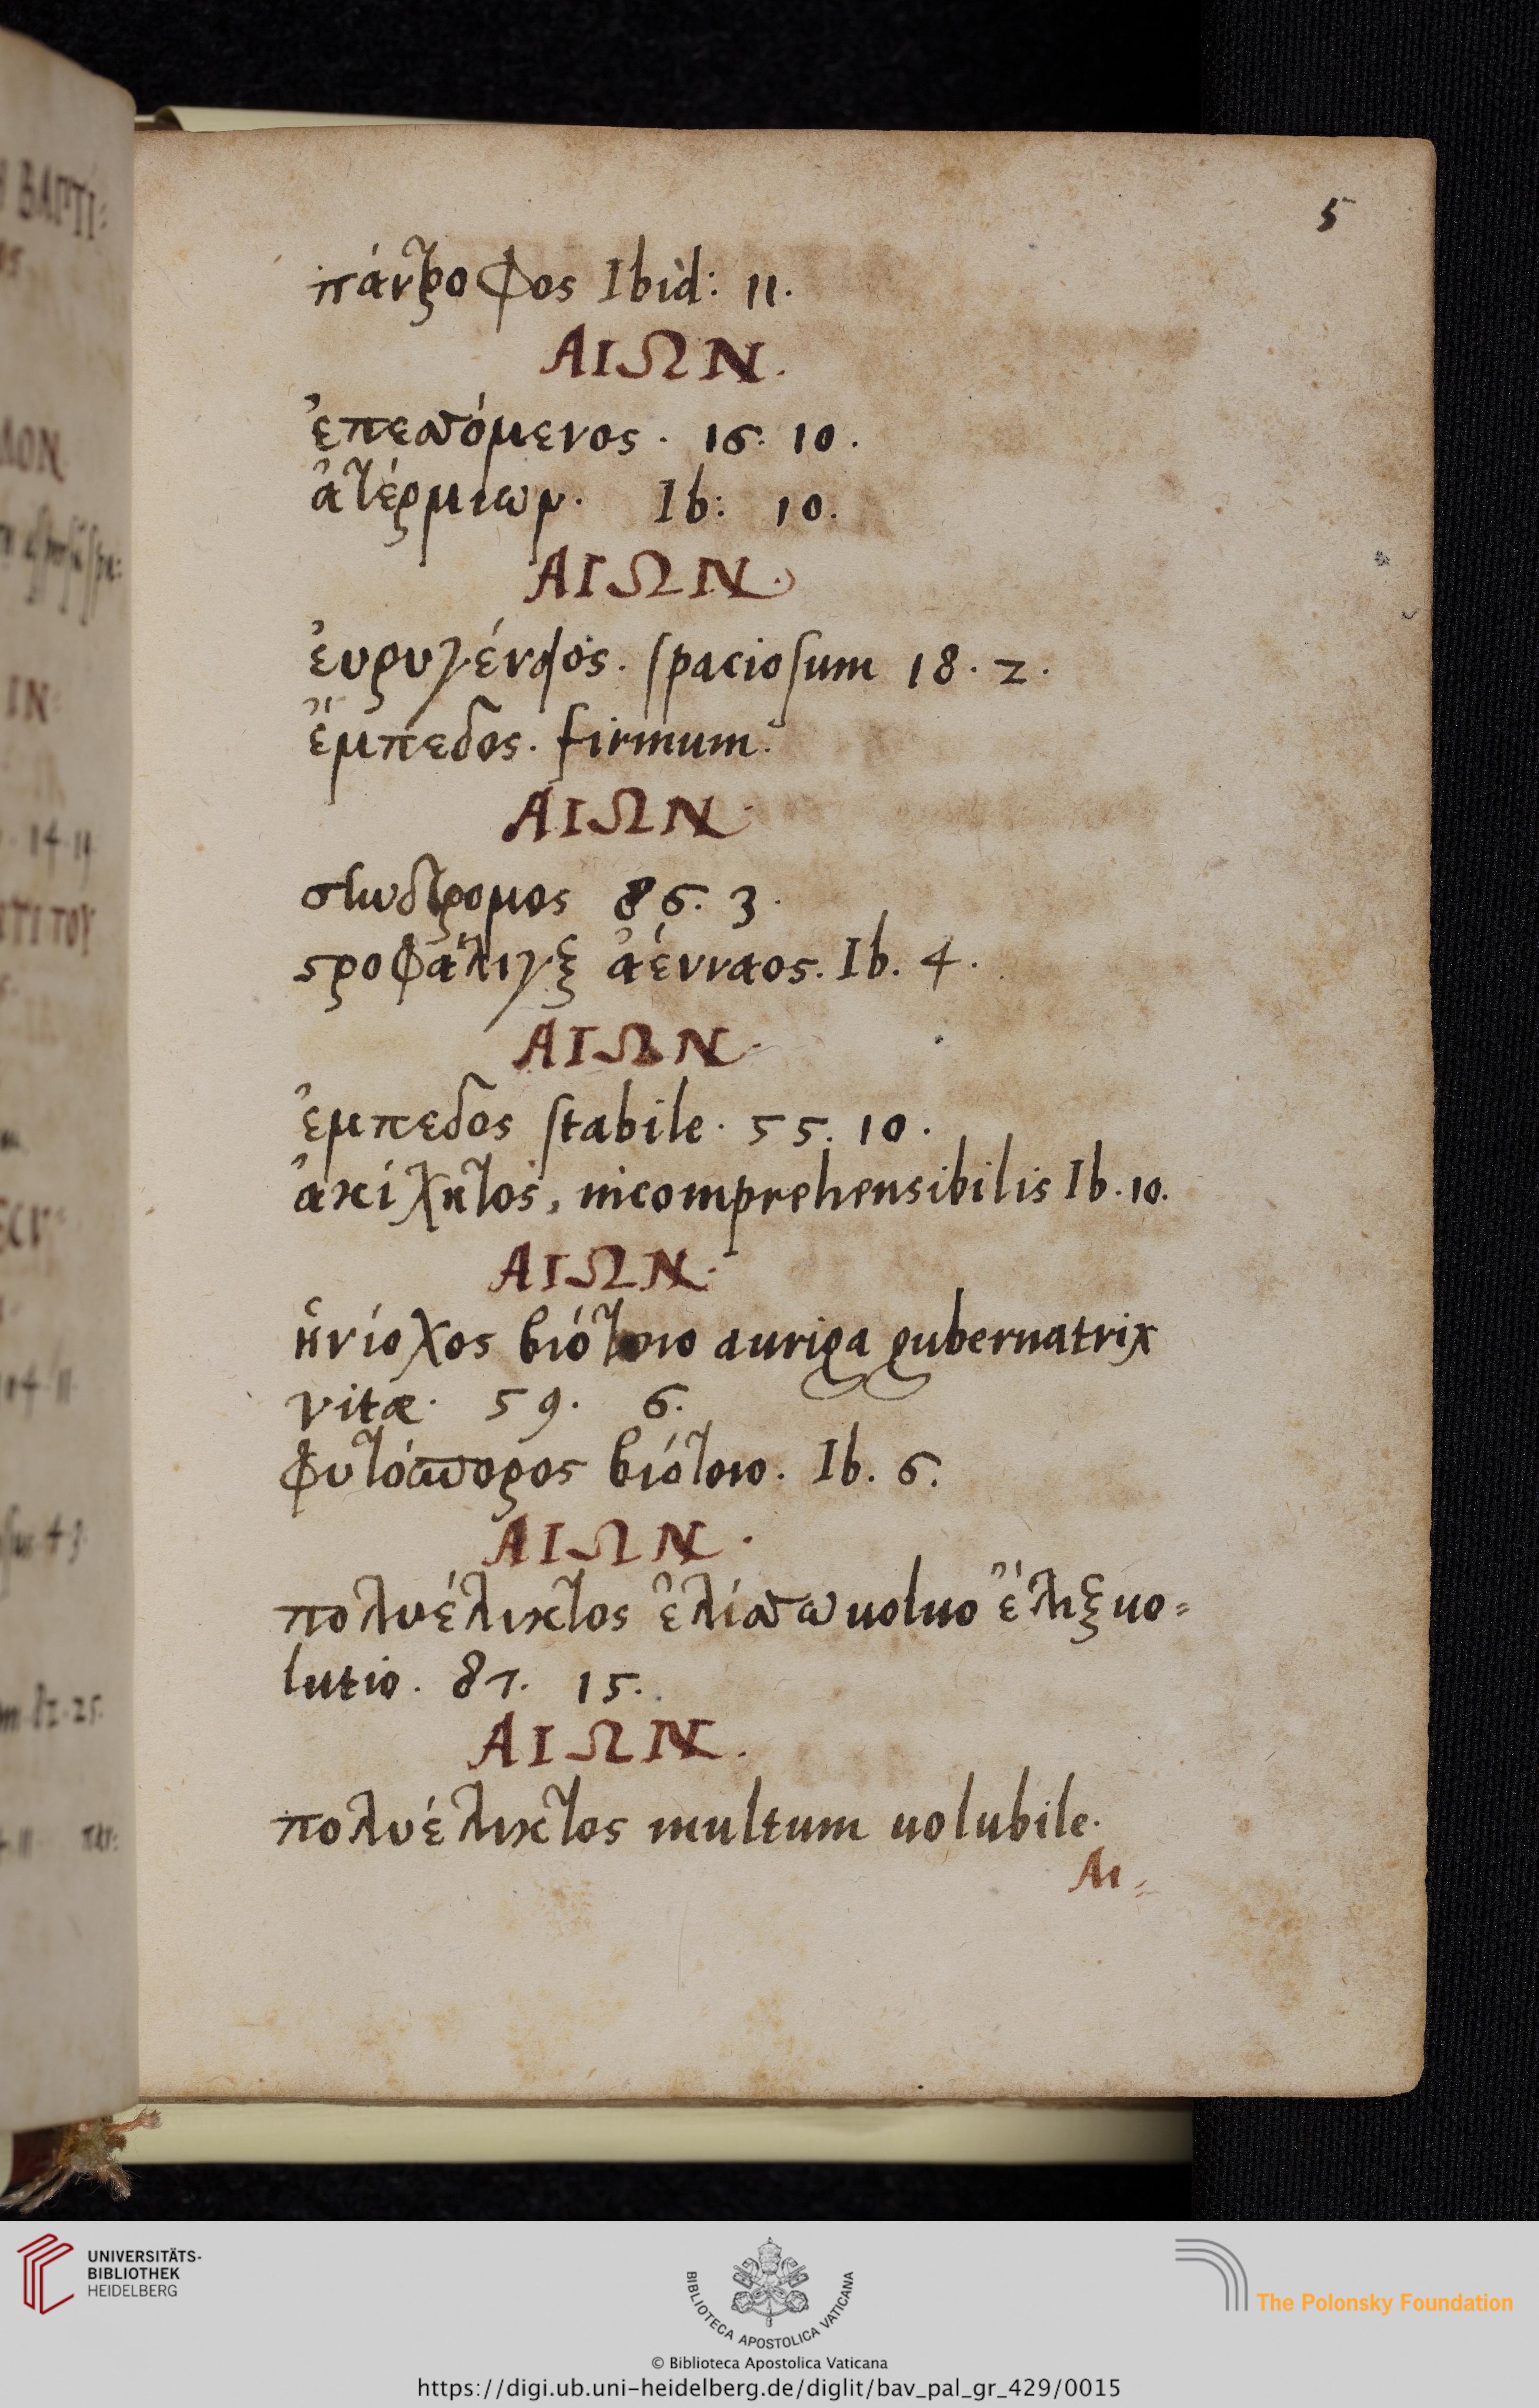 5
πάντροφος Ibid: 11.
ΑΙΩΝ.
ἐπεσσόμενος. 16. 10.
ἀτέρμων. Ib: 10.
ΑΙΩΝ.
ἐυρυγένειος. spaciosum 18. 2.
ἔμπεδος. firmum.
ΑΙΩΝ.
σύνδρομος 86. 3.
στροφάλιγξ ἀένναος. Ib. 4.
ΑΙΩΝ.
ἐμπεδος stabile. 55. 10.
ἀκίχητος, incomprehensibilis Ib. 10.
ΑΙΩΝ.
ἡνίοχος βιότοιο auriga gubernatrix
vitæ. 59. 6.
φυτόσπορος βιότοιο. Ib. 6.
ΑΙΩΝ.
πολυέλικτος ἐλίσσω uoluo ἔλιξ uo=
lutio. 87. 15.
ΑΙΩΝ.
πολυέλικτος multum uolubile.
Αι=
UNIVERSITÄTS-
BIBLIOTHEK
HEIDELBERG
BIBLIOTECA APOSTOLICA VATICANA
The Polonsky Foundation
© Biblioteca Apostolica Vaticana
https://digi.ub.uni-heidelberg.de/diglit/bav_pal_gr_429/0015